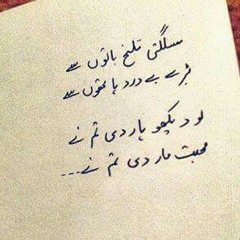 سلگتی تلخ باتوں سے
بڑے بے درد ہاتھوں سے
لو دیکھو ہار دی تم نے
محبت مار دی تم نے...